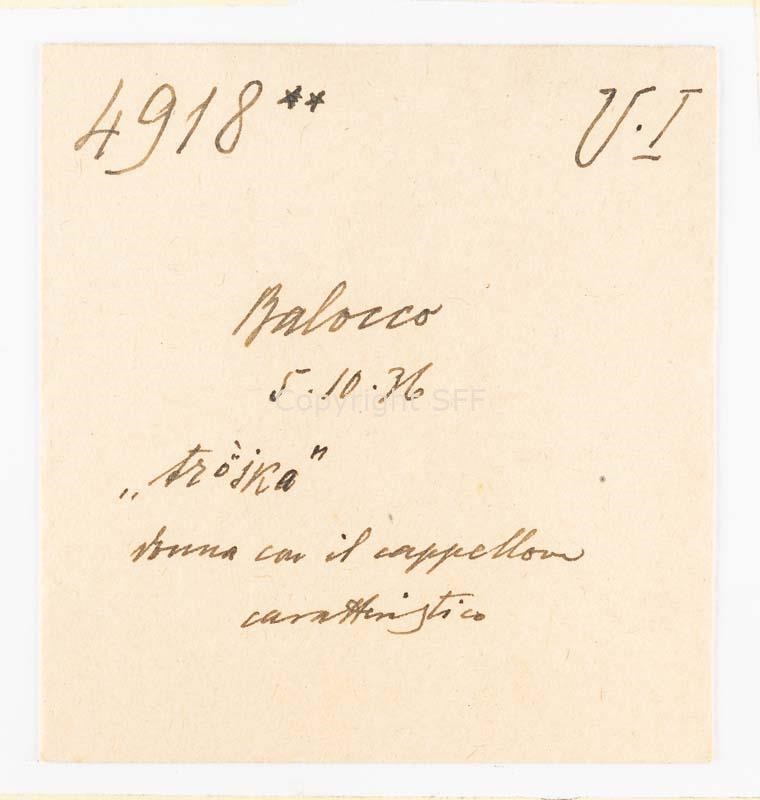 4918** V.I
Balocco
5.10.36
Copyright SFF
„tròjka"
donna con il cappellone
caratteristico